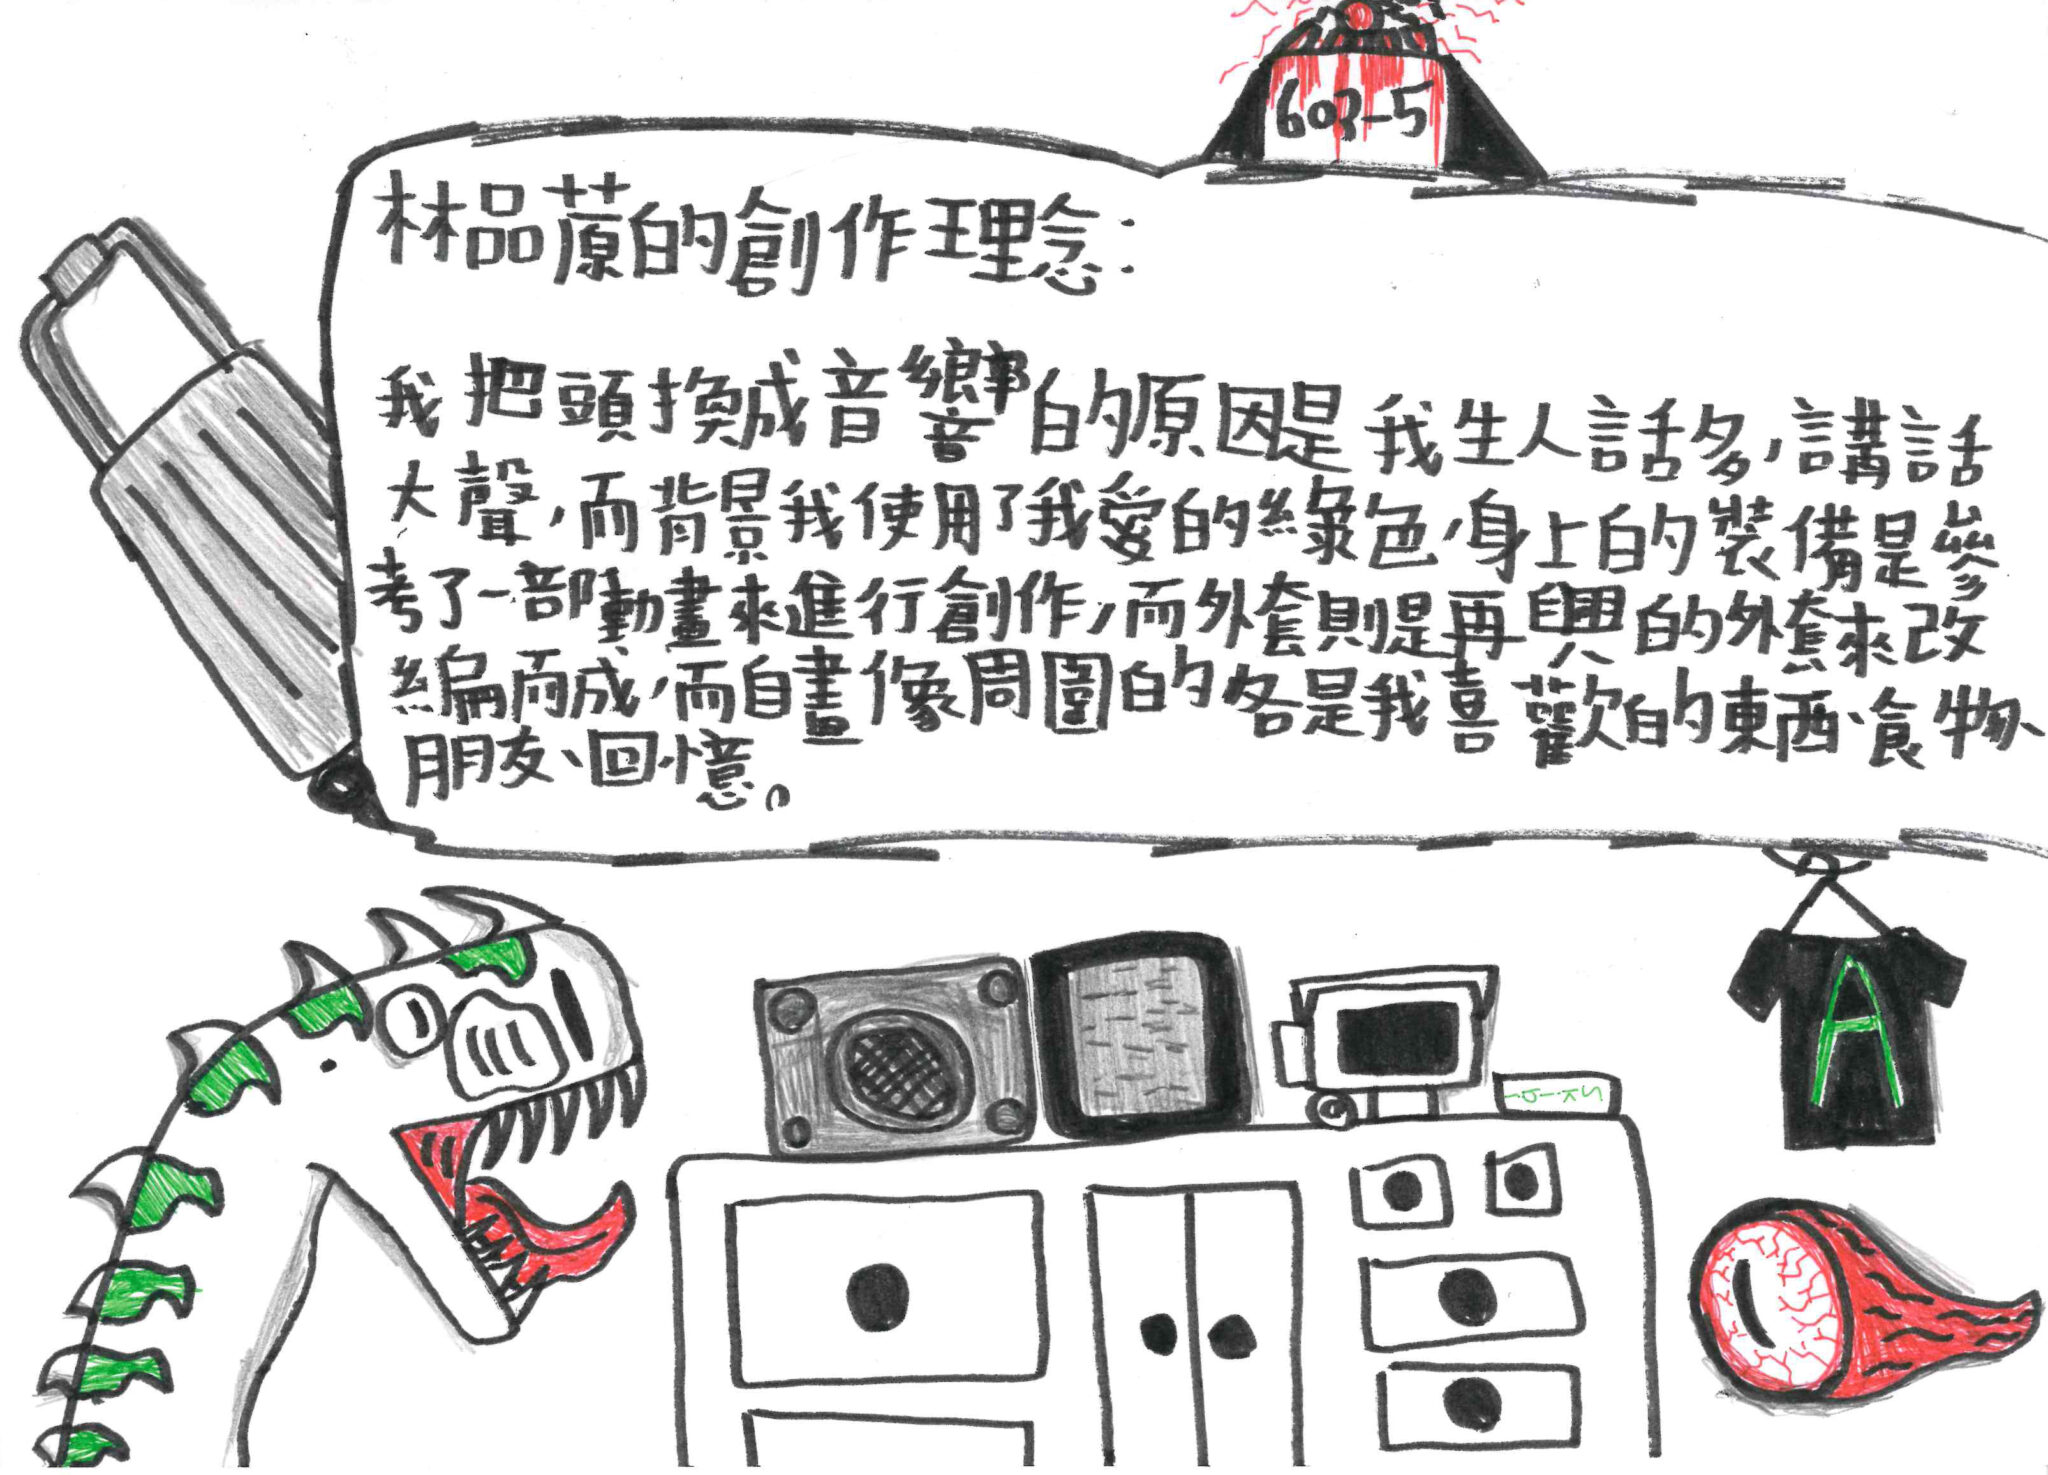 603-5
林品蒝的創作理念:
我把頭換成音響的原因是我生人話多,講話
大聲,而背景我使用了我愛的綠色,身上的裝備是參
考了一部動畫來進行創作,而外套則是再興的外套來改
編而成,而自畫像周圍的各是我喜歡的東西、食物、
朋友、回憶。
A